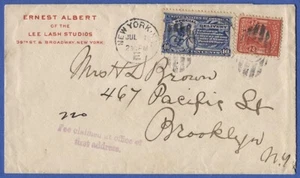 ERNEST ALBERT
OF THE
LEE LASH STUDIOS
BROADWAY, NEW YORK.
NEW YORK
JUL
Mrs A D Brown
467 Pacific St
Brooklyn
N.Y.
Fee claimed at office of
first address.